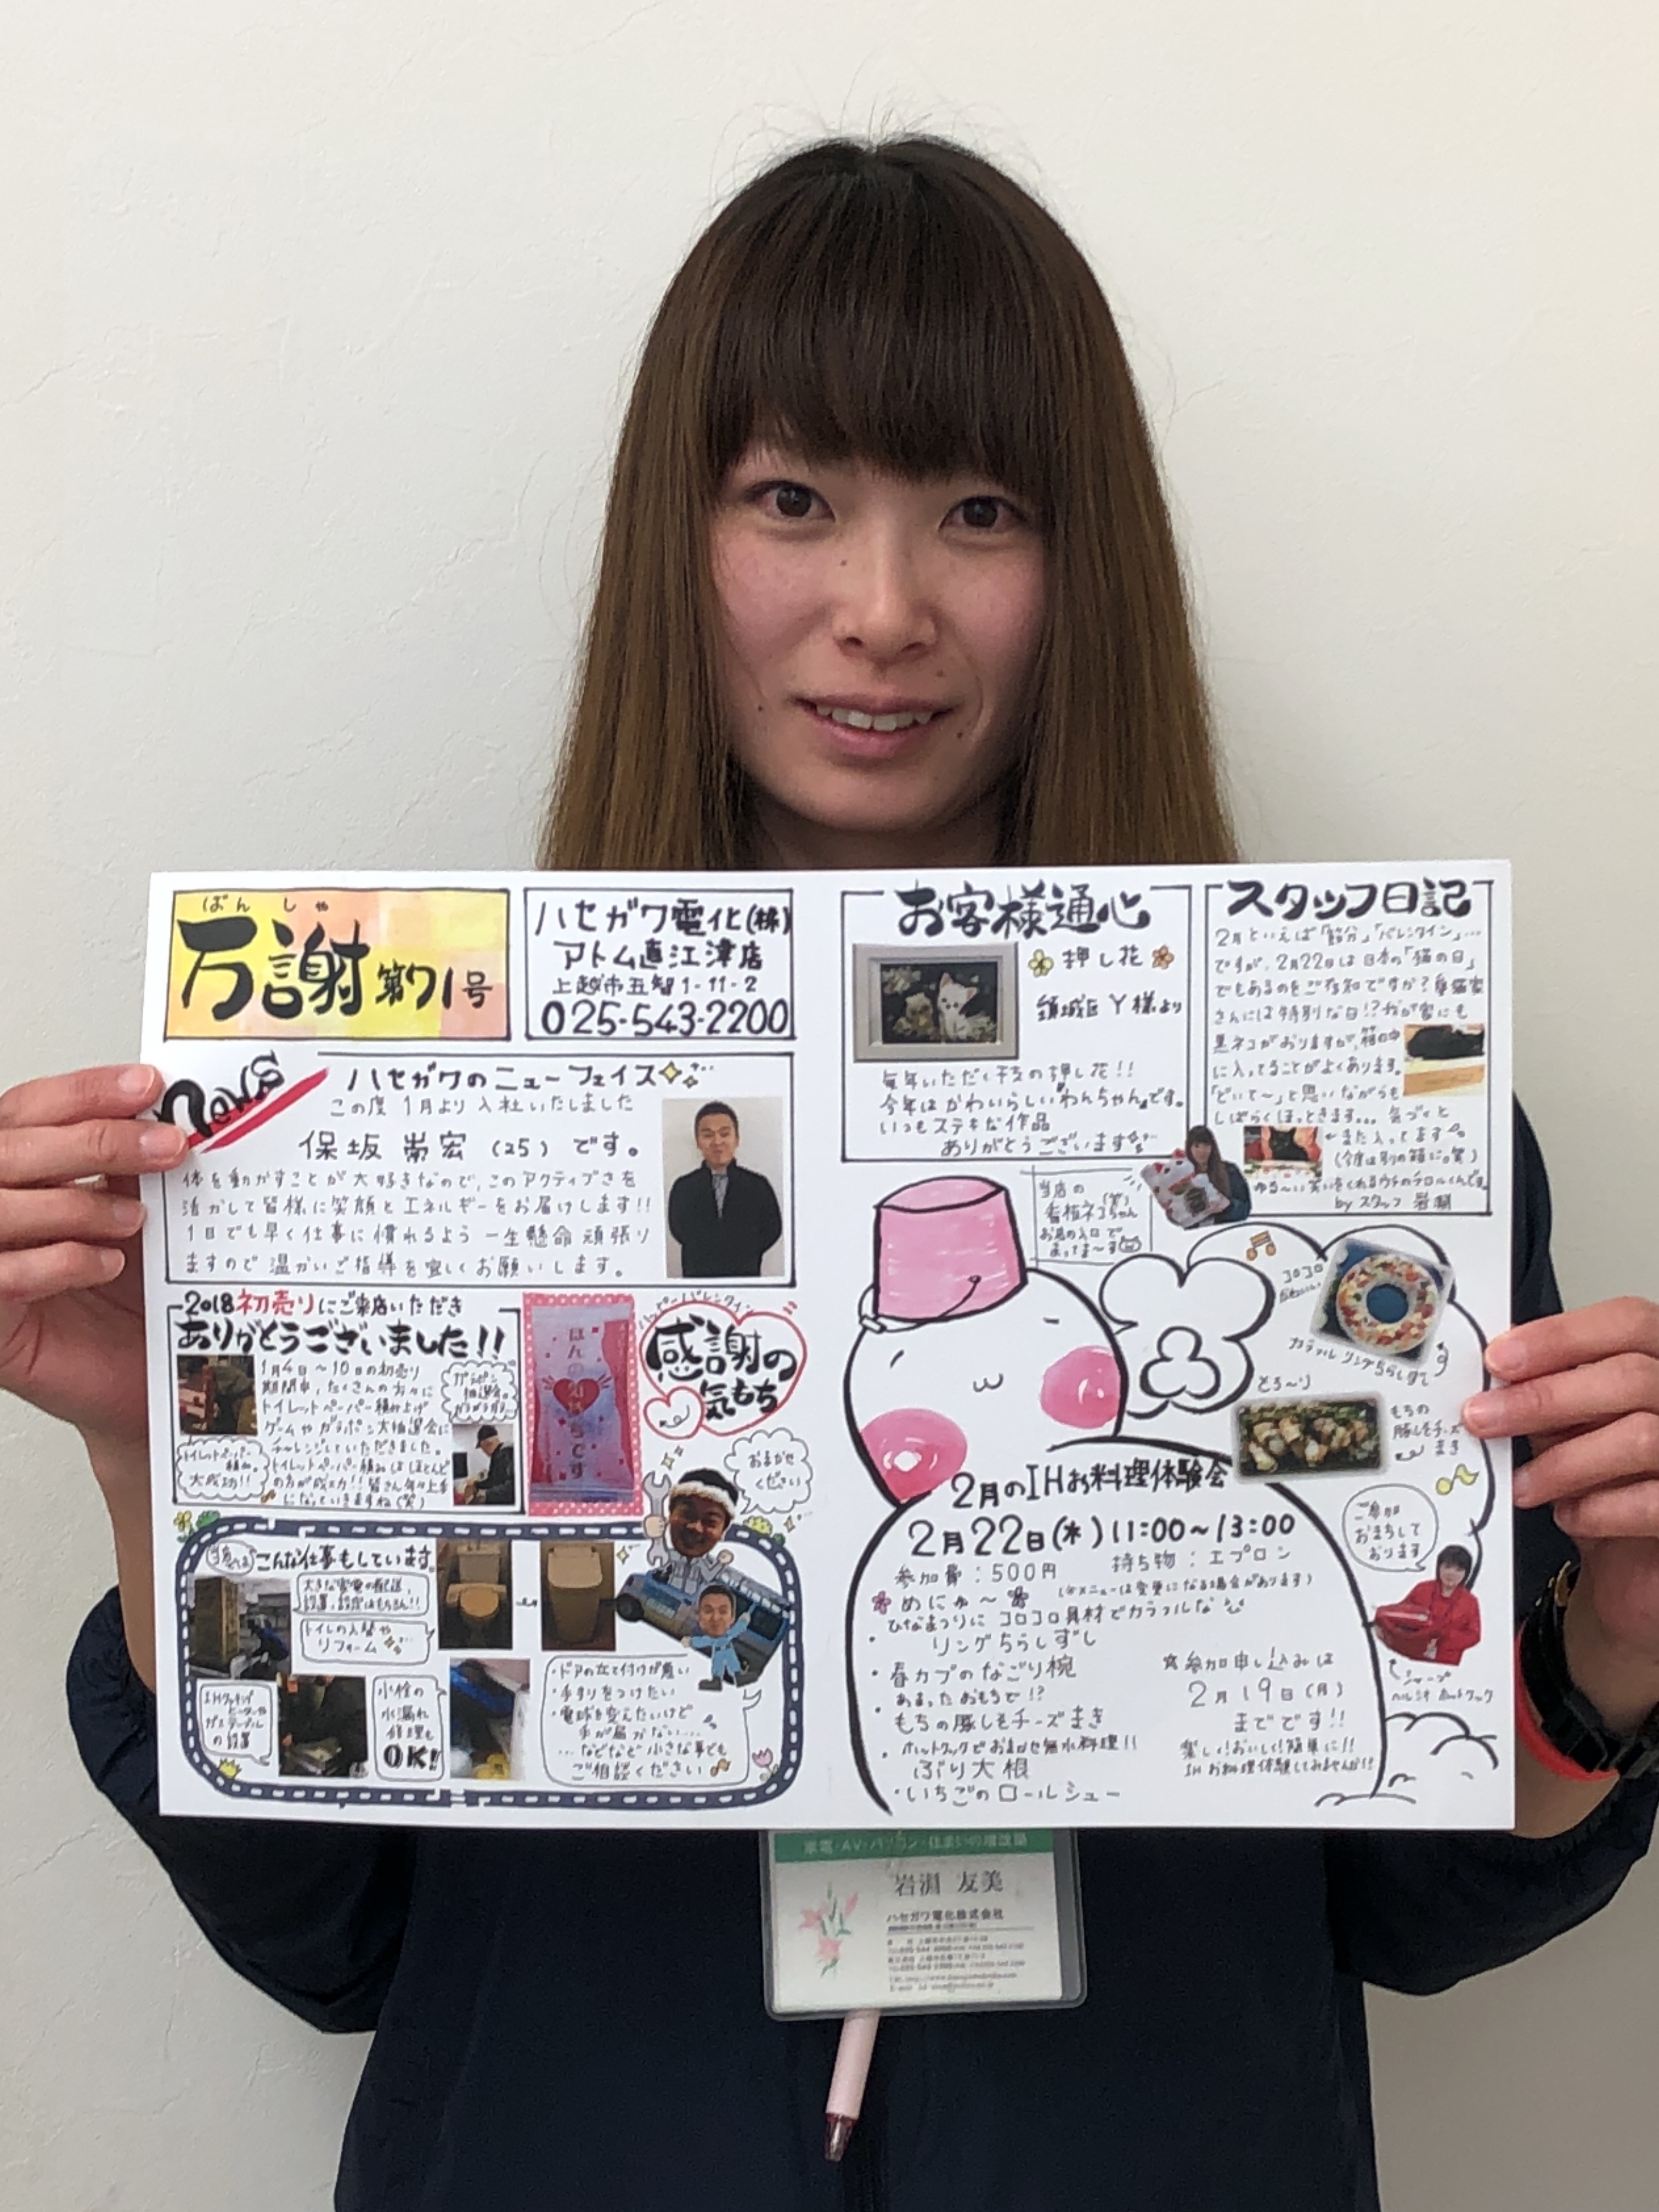 ばんしゃ
万謝 第71号
ハセガワ電化(株)
アトム直江津店
上越市五智1-11-2
025-543-2200
news
ハセガワのニューフェイス
この度 1月より入社いたしました
保坂 崇宏 (25) です。
体を動かすことが大好きなので、このアクティブさを
活かして皆様に笑顔とエネルギーをお届けします!!
1日でも早く仕事に慣れるよう 一生懸命 頑張り
ますので 温かいご指導を宜しくお願いします。
2018初売りにご来店いただき
ありがとうございました!!
1月4日〜10日の初売り
期間中、たくさんの方々に
トイレットペーパー積み上げ
ゲームやガラポン大抽選会に
チャレンジしていただきました。
トイレットペーパー積みはほとんど
の方が成功!!皆さん年々上手
になっていきますね(笑)
ガラポン
抽選会。
ガラガラガラ〜
トイレットペーパー
積み。
大成功!!
ほんの気持ちです
ハッピーバレンタイン
感謝の
気もち
おまかせ
ください
当店はこんな仕事もしています。
大きな家電の配送、
設置、設定はもちろん!!
トイレの入替や
リフォーム
IHクッキング
ヒーターや
ガステーブル
の設置
水栓の
水漏れ
修理も
OK!!
・ドアの立て付けが悪い
・手すりをつけたい
・電球を変えたいけど
手が届かない…
…などなど 小さな事でも
ご相談ください
お客様通心
押し花
頸城区 Y様より
毎年いただく干支の押し花!!
今年はかわいらしい"わんちゃん"です。
いつもステキな作品
ありがとうございます
スタッフ日記
2月といえば「節分」「バレンタイン」…
ですが、2月22日は日本の「猫の日」
でもあるのをご存知ですか?愛猫家
さんには特別な日!?我が家にも
黒ネコがおりますが、箱の中
に入ってることがよくあります。
「どいて〜」と思いながらも
しばらくほっときます… 気づくと
←また入ってます
(今度は別の箱に。笑)
ゆる〜い笑いをくれるウチのチロルくんです。
by スタッフ 岩渕
当店の(笑)
看板ネコちゃん
お店の入口で
まってま〜す
コロコロ
かわいい
カラフル リングちらしずし
とろ〜り
もちの
豚しそチーズ
まき
2月のIHお料理体験会
2月22日(木) 11:00〜13:00
参加費:500円 持ち物:エプロン
(※メニューは変更になる場合があります)
めにゅ〜
ひなまつりに コロコロ具材でカラフルな
・リングちらしずし
・春カブのなごり椀
あまったおもちで!?
・もちの豚しそチーズまき
ホットクックでおまかせ無水料理!!
・ぶり大根
・いちごのロールシュー
☆参加申し込みは
2月19日(月)
までです!!
楽しく!おいしく!簡単に!!
IHお料理体験してみませんか!?
ご参加
おまちして
おります
シャープ
ヘルシオ ホットクック
家電・AV・パソコン・住まいの増改築
岩渕 友美
ハセガワ電化株式会社